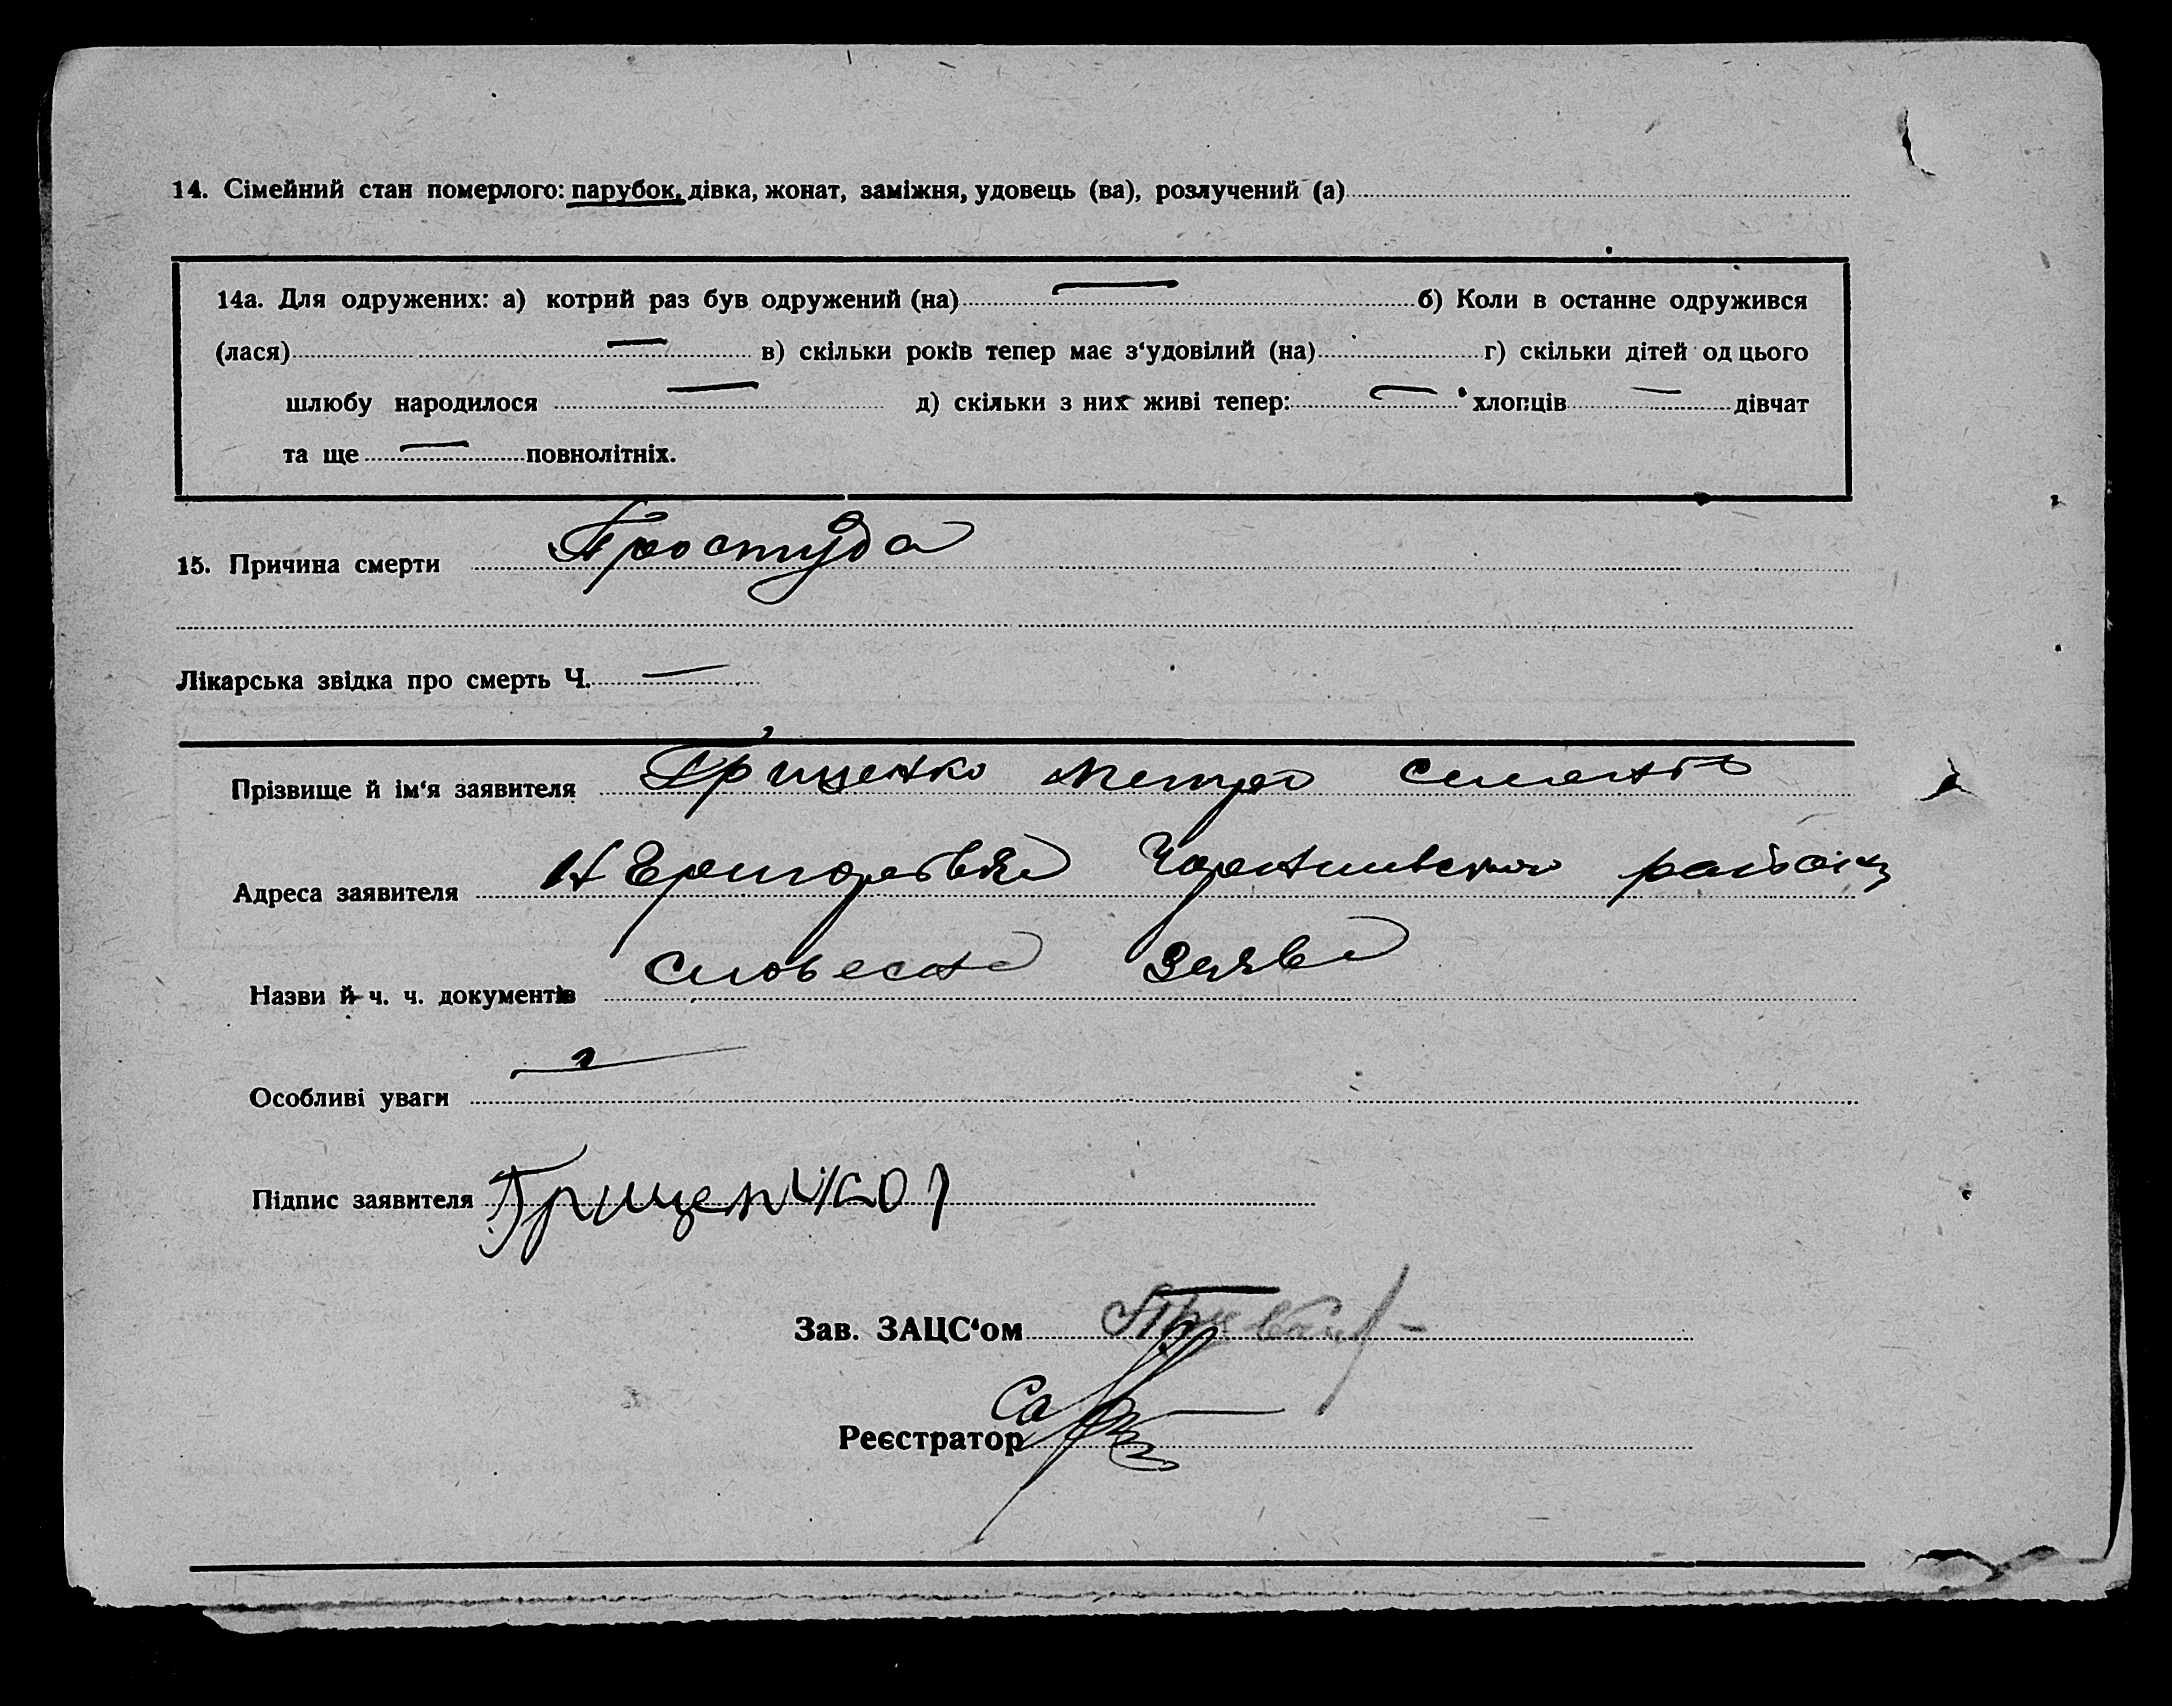 14. Сімейний стан померлого: парубок, дівка, жонат, заміжня, удовець (ва), розлучений (а)
14а. Для одружених: а) котрий раз був одружений (на) — б) Коли в останне одружився
(лася) — в) скільки років тепер має з‘удовілий (на) г) скільки дітей од цього
шлюбу народилося — д) скільки з них живі тепер: — хлопців — дівчат
та ще — повнолітніх.
15. Причина смерти Простуда
Лікарська звідка про смерть Ч. —
Прізвище й ім‘я заявителя Грищенко
Адреса заявителя района
Назви й ч. ч. документів Словесна Заява
Особливі уваги —
Підпис заявителя Грищенко
Зав. ЗАЦС‘ом
Реєстратор